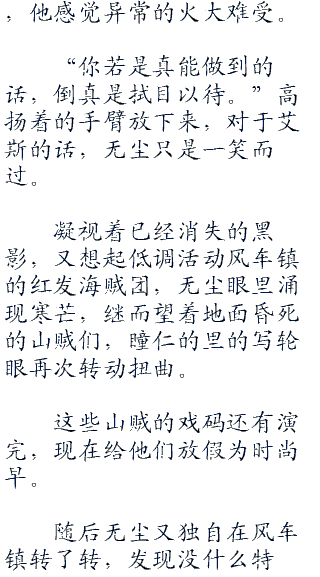 ，他感觉异常的火大难受。
“你若是真能做到的
话，倒真是拭目以待。”高
扬着的手臂放下来，对于艾
斯的话，无尘只是一笑而
过。
凝视着已经消失的黑
影，又想起低调活动风车镇
的红发海贼团，无尘眼里涌
现寒芒，继而望着地面昏死
的山贼们，瞳仁的里的写轮
眼再次转动扭曲。
这些山贼的戏码还有演
完，现在给他们放假为时尚
早。
随后无尘又独自在风车
镇转了转，发现没什么特